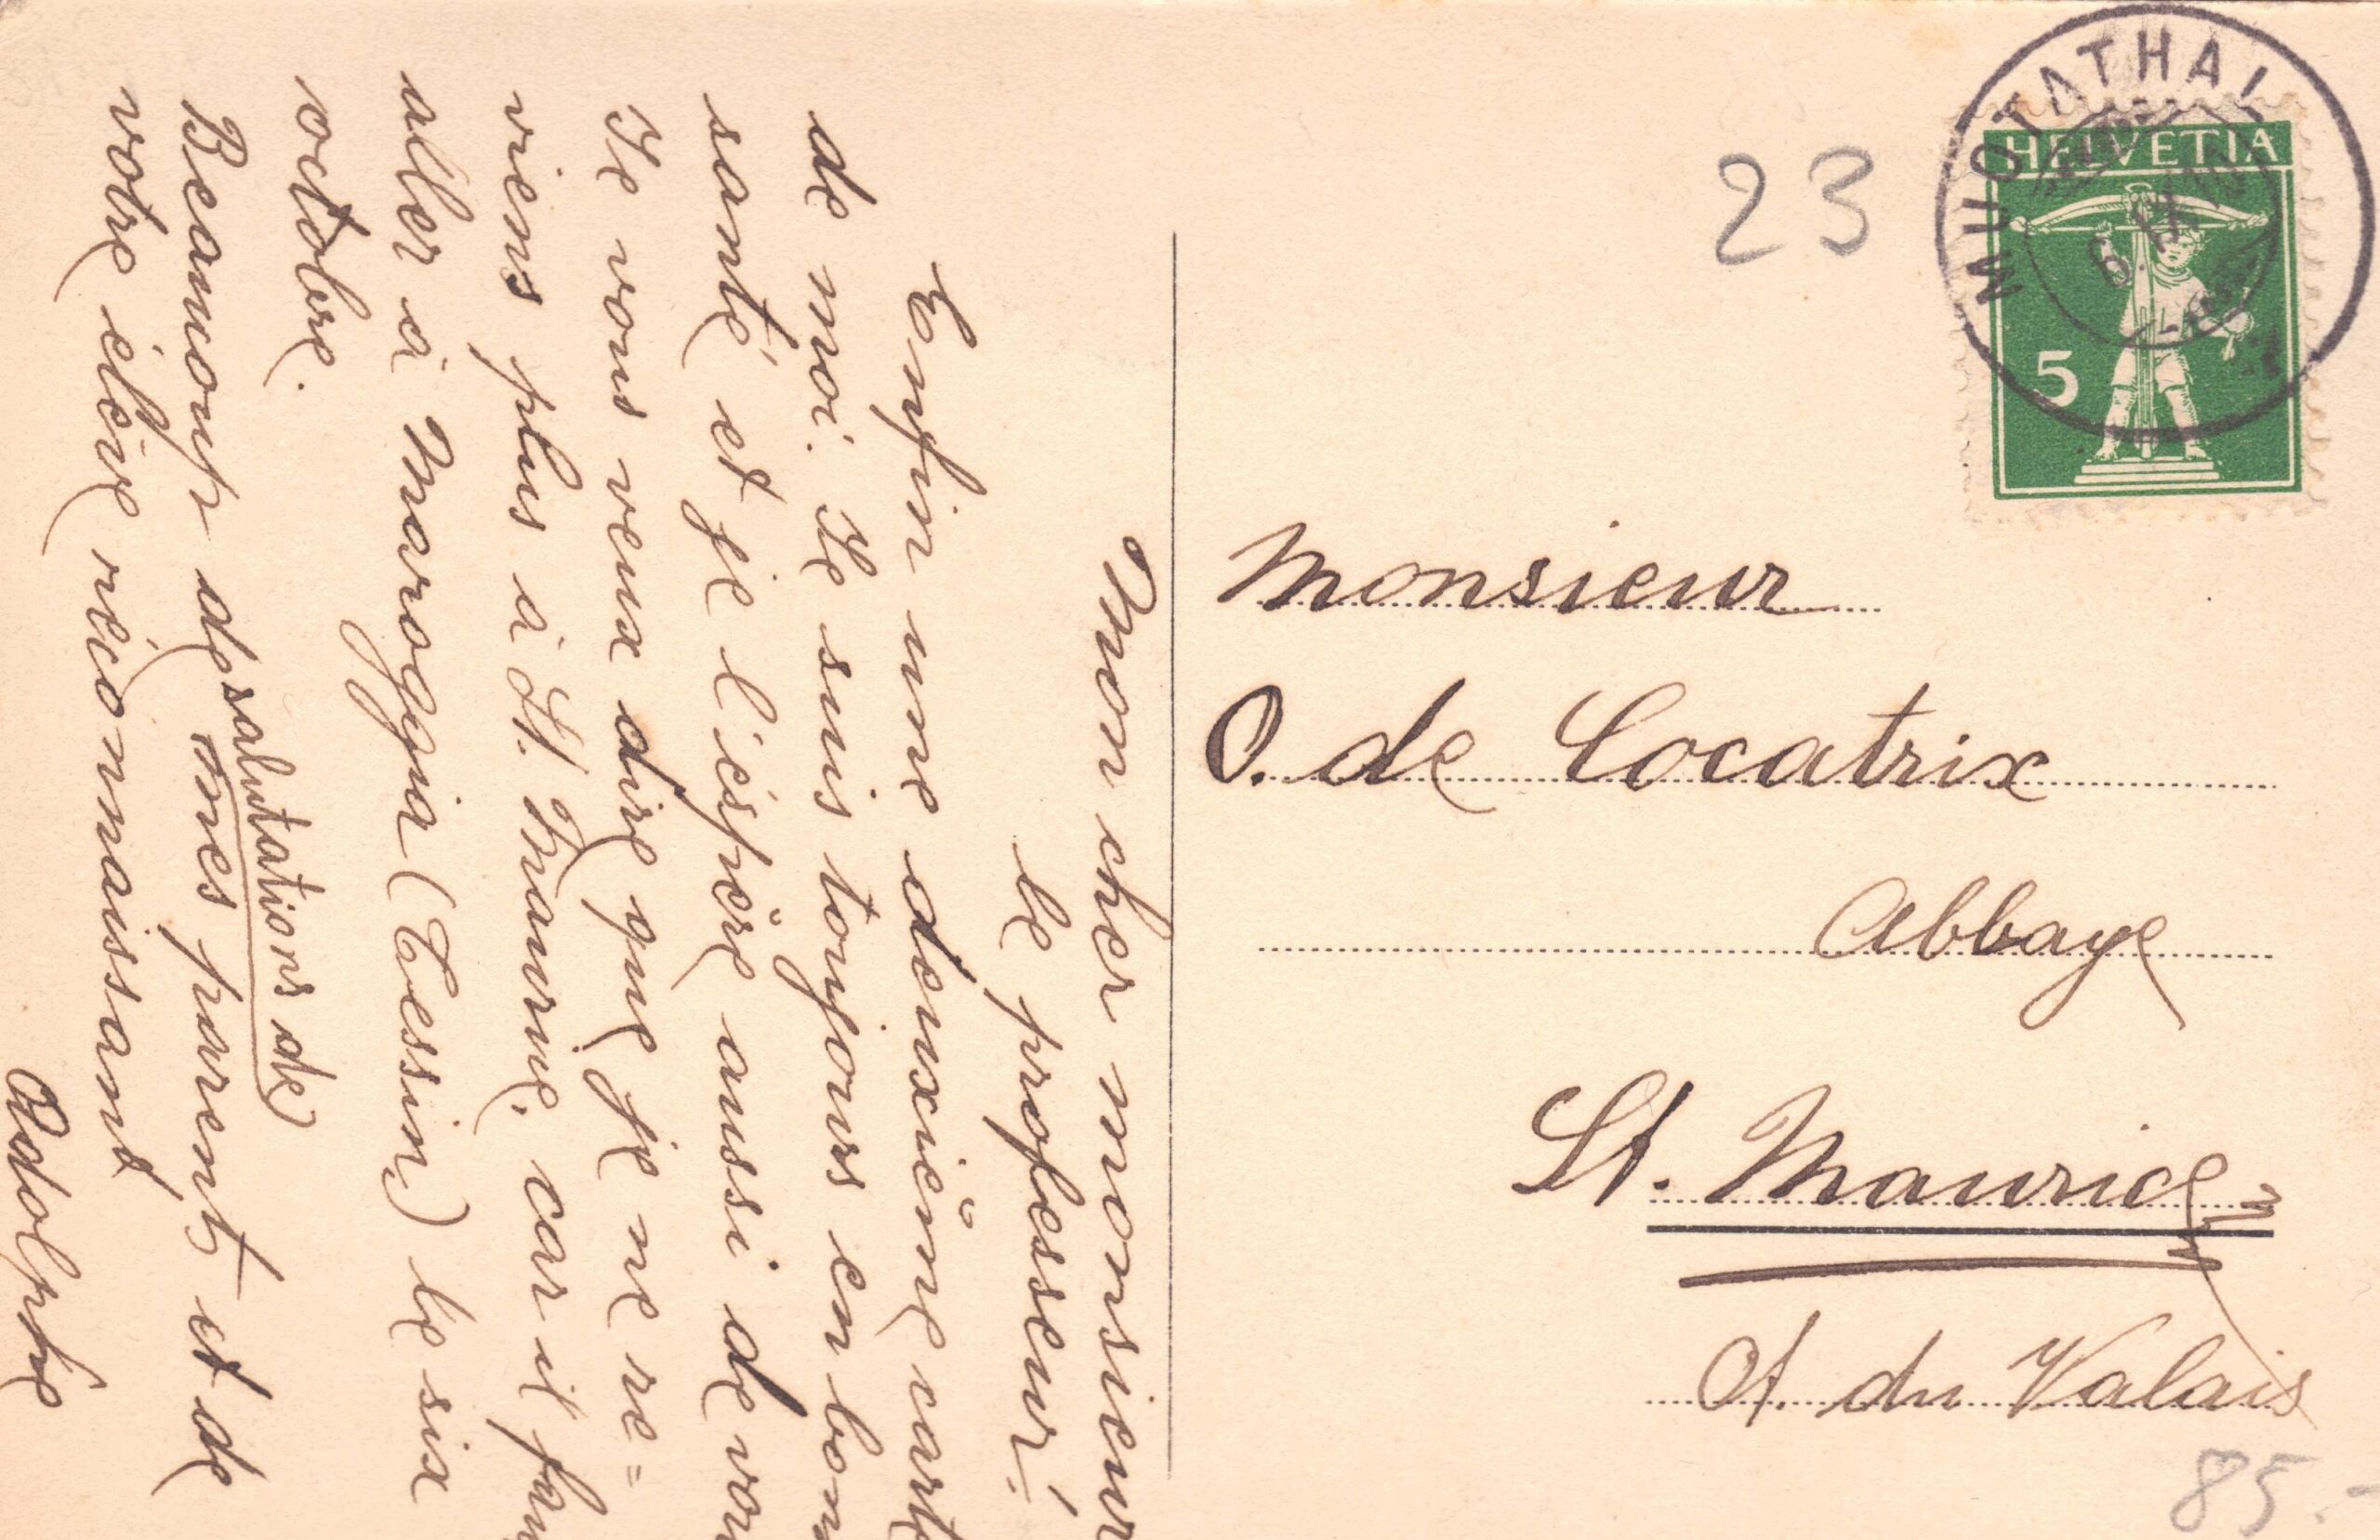 Mon cher monsieur
le professeur!
Enfin une deuxième carte
de moi. Je suis toujours en bon
santé et je l'éspère aussi de vou
Je vous veux dire que je ne re=
viens plus à St. Maurice, car it fau
aller à Maroggia (Tessin) le six
octobre.
Beaucoup de salutations de
mes parents et de
votre élève réconnaissant
Adolphe
23
MUOTATHAL
HELVETIA
5
Monsieur
O. de Cocatrix
Abbaye
St. Maurice
Ct. du Valais
85.-